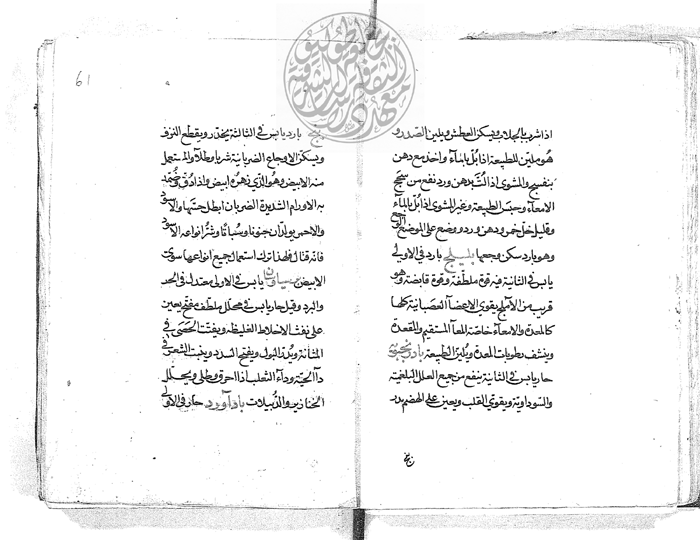 اذا شرب بالجلاب ويسكن العطش ويلين الصدر و
هو ملين للطبيعة اذا بلّ بالماء واخذ مع دهن
بنفسج والمشوي اذا لتّ بدهن ورد نفع من سحج
الامعاء وحبس الطبيعة وغير المشوي اذا بلّ بالماء
وقليل خل خمر ودهن ورد ووضع على الموضع الوجع
وهو بارد سكن وجعها بليلج بارد في الاولى
يابس في الثانية فيه قوة ملطفة وقوة قابضة وهو
قريب من الاملج يقوي الاعضآ العصبانية كلها
كالمعدة والامعاء خاصة المعآ المستقيم والمقعدة
وينشف رطوبات المعدة ويلين الطبيعة بادرنجبويه
حار يابس في الثانية ينفع من جميع العلل البلغمية
والسوداوية ويقوي القلب ويعين على الهضم بدر
بنج
61
بنج بارد يابس في الثالثة يخدر ويقطع النزف
ويسكن الاوجاع الضربانية شربا وطلاء والمستعمل
منه الابيض وهو الذي زهره ابيض واذا دق وضمد
به الاورام الشديدة الضربان ابطل حسها والاسود
والاحمر يولدان جنونا وسباتا وشر انواعه الاسود
فانه قتال فلهذا ترك استعمال جميع انواعها سوى
الابيض يابس في الاولى معتدل في الحر
والبرد وقيل حار يابس في محلل ملطف مفتح يعين
على نفث الاخلاط الغليظة ويفتت الحصى في
المثانة ويدر البول ويفتح السدد وينبت الشعر في
دآ الحية ودآء الثعلب اذا احرق وطلي ويحلل
الخنازير والدبيلات باداورد حار في الاولى